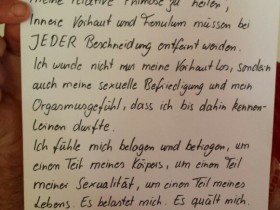 meine relative Phimose zu heilen,
Innere Vorhaut und Frenulum müssen bei
JEDER Beschneidung entfernt werden.
Ich wurde nicht nur meine Vorhaut los, sondern
auch meine sexuelle Befriedigung und mein
Orgasmusgefühl, dass ich bis dahin kennen-
lernen durfte.
Ich fühle mich belogen und betrogen, um
einen Teil meines Körpers, um einen Teil
meiner Sexualität, um einen Teil meines
Lebens. Es belastet mich. Es quält mich.